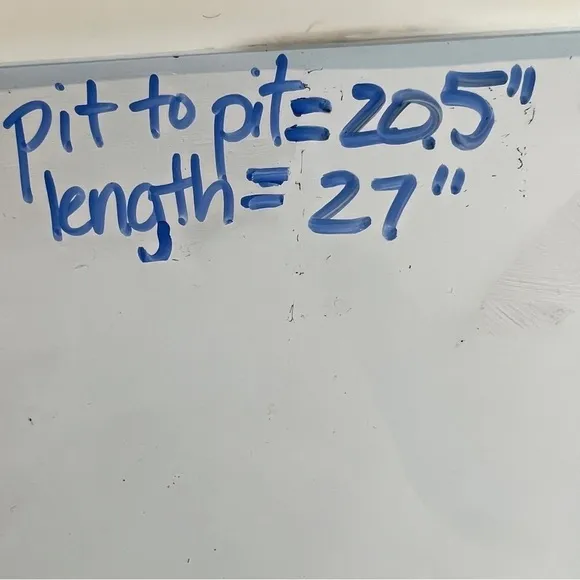 pit to pit = 20.5"
length = 27"